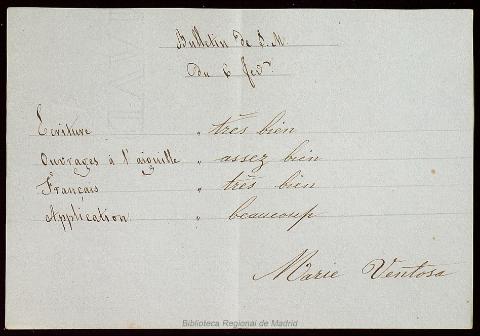 Bulletin de S. M.
Du 6 fevr.
Ecriture " très bien
Ouvrages à l'aiguille " assez bien
Français " très bien
Application " beaucoup
Marie Ventosa
Biblioteca Regional de Madrid